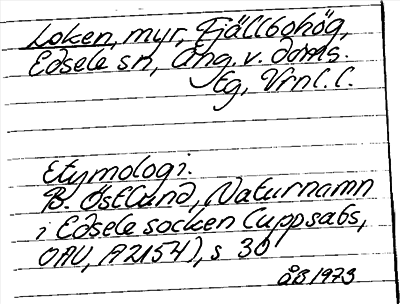 Loken, myr, Fjällbohög,
Edsele sn, Ång. v. doms.
Eg, Vrnl. l.
Etymologi.
B. Östlund, Naturnamn
i Edsele socken (uppsats,
OAU, A2154), s 30
ÅB 1973